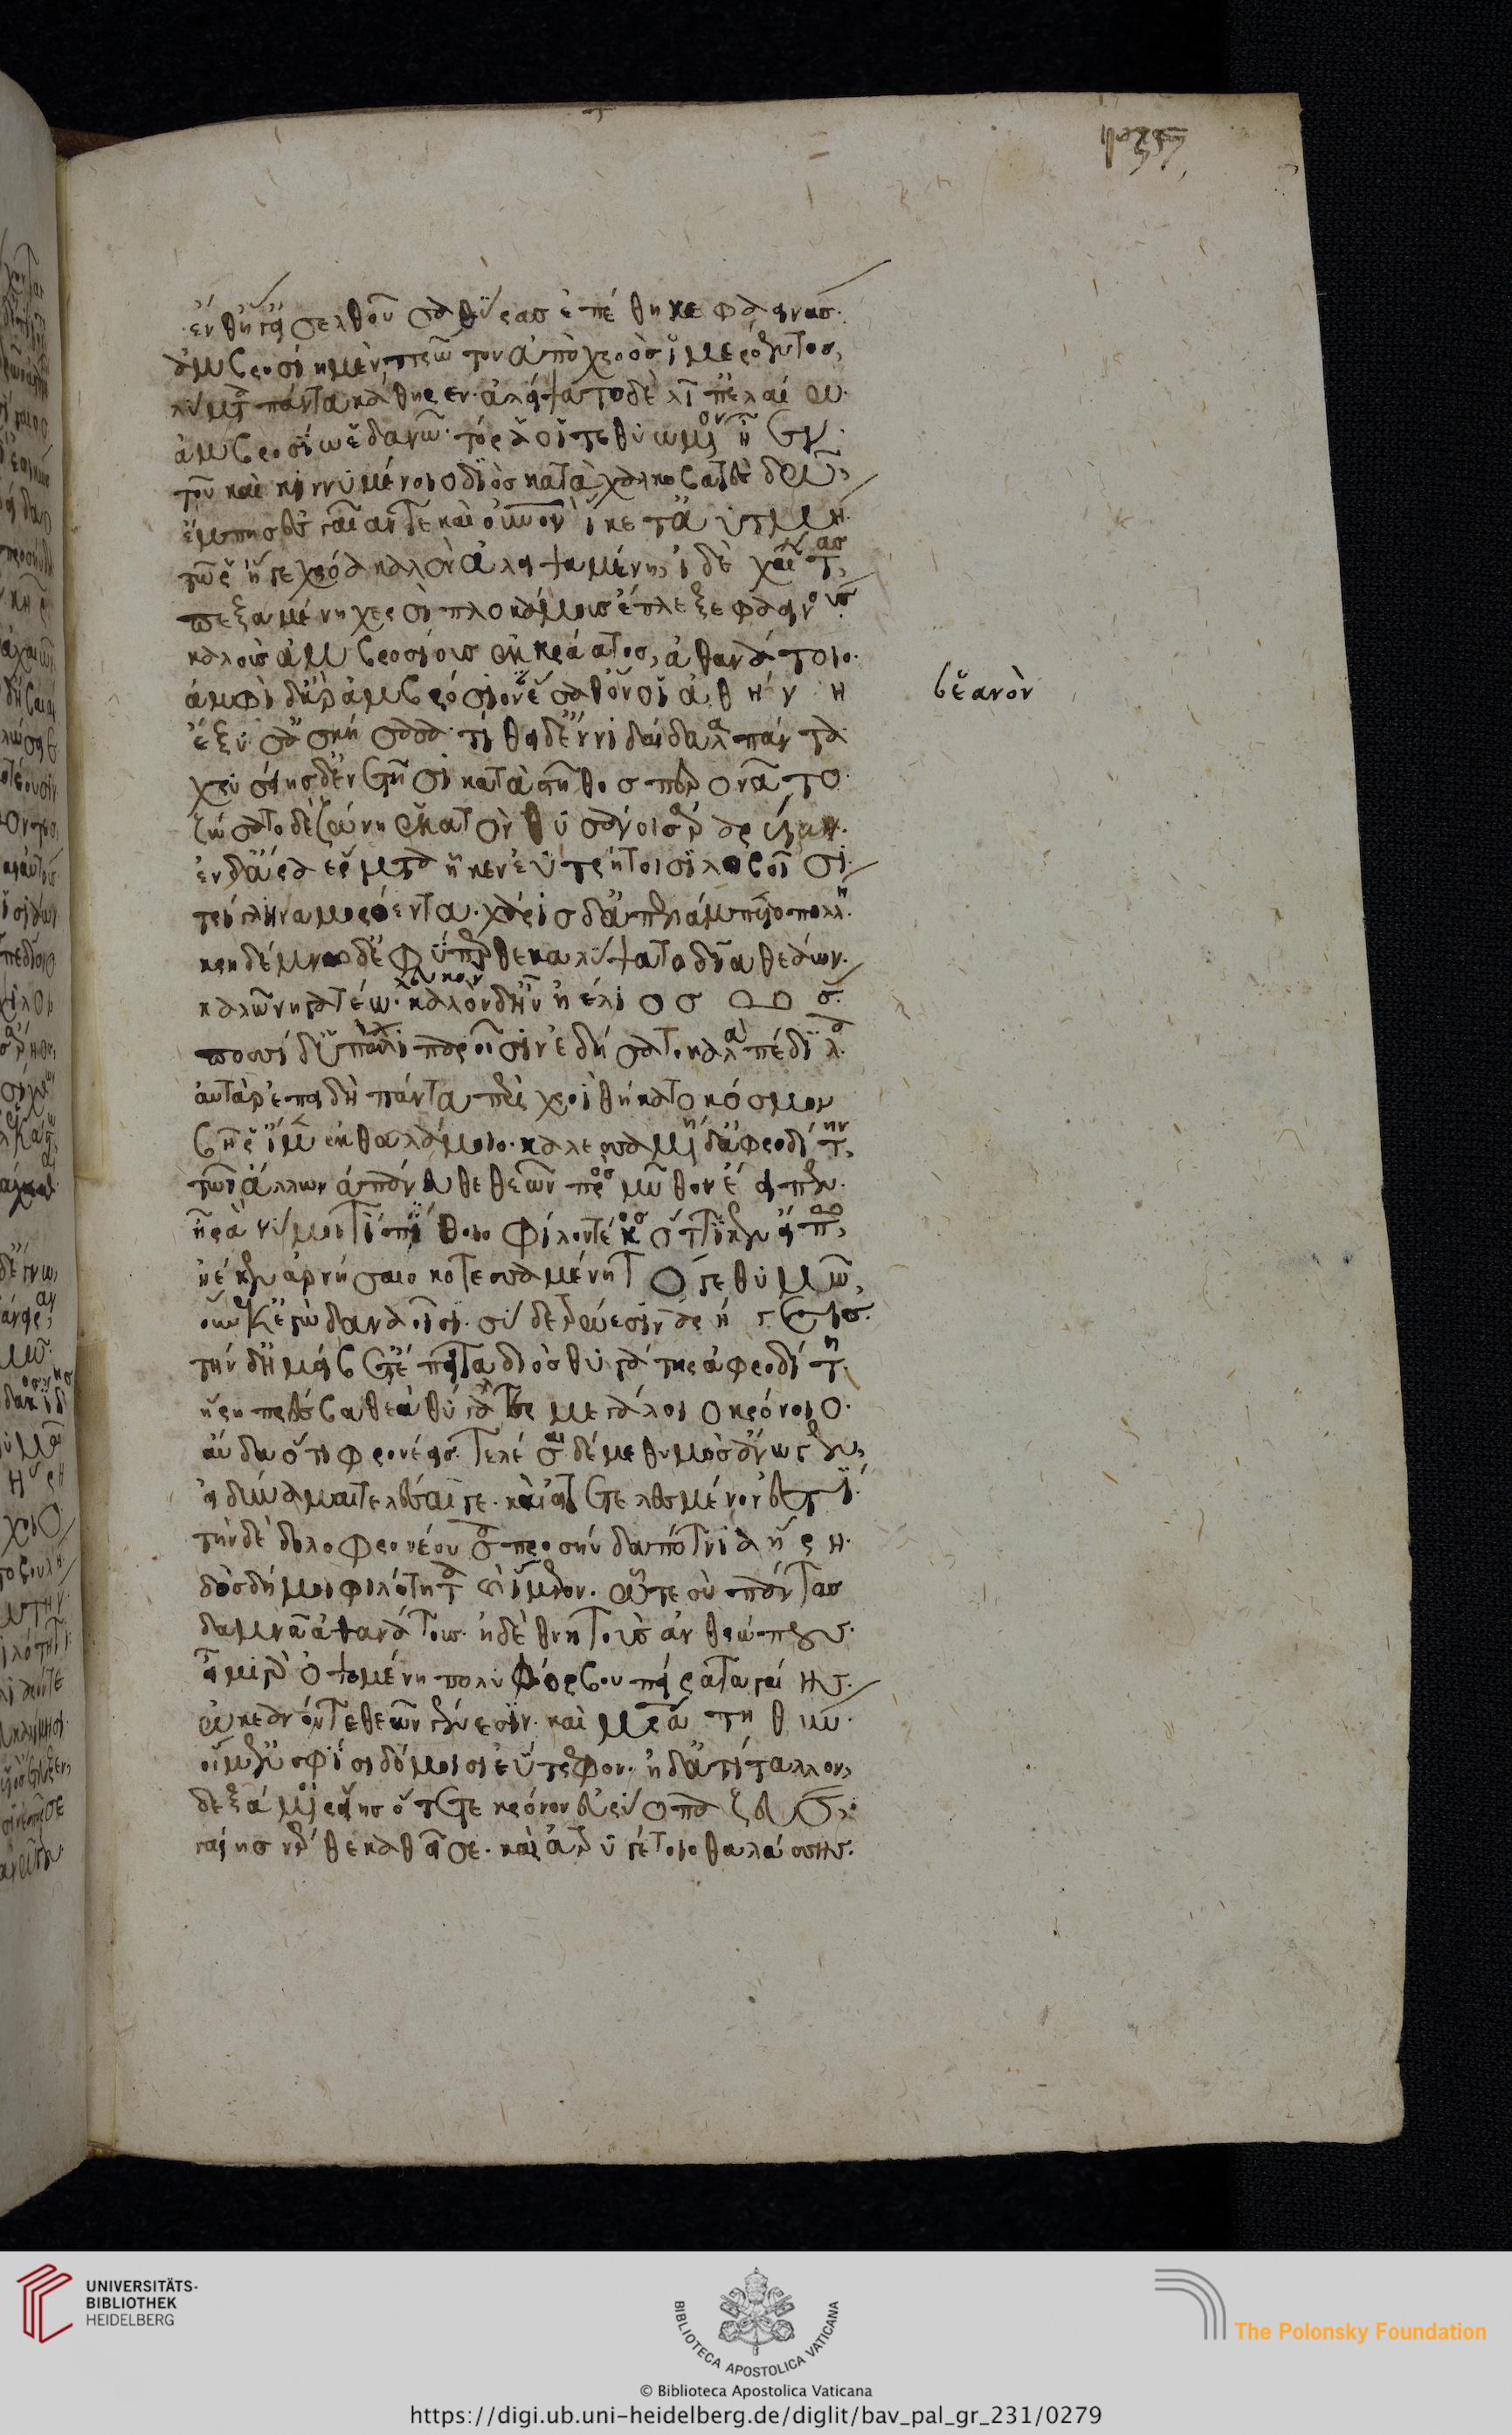 ἔνθ' ἥ γ' εἰσελθοῦσα θύρας ἐπέθηκε φαεινάς·
ἀμβροσίη μὲν πρῶτον ἀπὸ χροὸς ἱμερόεντος,
λύματα πάντα κάθηρεν· ἀλείψατο δὲ λίπ' ἐλαίω·
ἀμβροσίω ἑδανῶ· τό ρά οἱ τεθυωμένον ἦεν·
τοῦ καὶ κιννυμένοιο διὸς κατὰ χαλκοβατὲς δῶ,
ἔμπης ἐς γαῖάν τε καὶ οὐρανὸν ἵκετ' ἀϋτμή·
τῶ ῥ' ἥ γε χρόα καλὸν ἀλειψαμένη, ἰδὲ χαίτας,
πεξαμένη χερσὶ πλοκάμους ἔπλεξε φαεινούς·
καλοὺς ἀμβροσίους ἐκ κράατος, ἀθανάτοιο·
ἀμφὶ δ' ἄρ' ἀμβρόσιον ἕσαθ' ὅν οἱ ἀθήνη
ἑανὸν
ἔξυσ' ἀσκήσασα· τίθει δ' ἐνὶ δαίδαλα πάντα·
χρυσείης δ' ἐνετῆσι κατὰ στῆθος περονᾶτο·
ζώσατο δὲ ζώνη ἑκατὸν θυσάνοις ἀραρυίη·
ἐν δ' ἄρα ἕρματα ἧκεν ἐϋτρήτοισι λοβοῖσι·
τρίγληνα μορόεντα· χάρις δ' ἀπελάμπετο πολλή·
κρηδέμνω δ' ἐφύπερθε καλύψατο δῖα θεάων·
λευκὸν
καλῶ νηγατέω· καλὸν δ' ἦν ἠέλιος ὥς·
ποσσὶ δ' ὑπαὶ λιπαροῖσιν ἐδήσατο καλὰ πέδιλα·
αὐτὰρ ἐπειδὴ πάντα περὶ χροῒ θήκατο κόσμον
βῆ ῥ' ἴμεν ἐκ θαλάμοιο· καλεσσαμένη δ' ἀφροδίτην,
τῶν ἄλλων ἀπάνευθε θεῶν πρὸς μῦθον ἔειπεν·
ἦ ρά νύ μοι τι πίθοιο φίλον τέκος ὅττι κεν εἴπω,
ἠέ κεν ἀρνήσαιο κοτεσσαμένη τό γε θυμῶ,
οὕνεκ' ἐγὼ δαναοῖσι· σὺ δὲ τρώεσιν ἀρήγεις·
τὴν δ' ἠμείβετ' ἔπειτα διὸς θυγάτηρ ἀφροδίτη·
ἥρη πρέσβα θεὰ θύγατερ μεγάλοιο κρόνοιο·
αὔδα ὅ τι φρονέεις· τελέσαι δέ με θυμὸς ἄνωγεν,
εἰ δύναμαι τελέσαι γε· καὶ εἰ τετελεσμένον ἐστί·
τὴν δὲ δολοφρονέουσα προσηύδα πότνια ἥρη·
δὸς δή μοι φιλότητα καὶ ἵμερον· ᾧτε σὺ πάντας
δαμνᾶ ἀθανάτους· ἠδὲ θνητοὺς ἀνθρώπους·
εἶμι γὰρ ὀψομένη πολυφόρβου πείρατα γαίης·
ὠκεανόν τε θεῶν γένεσιν· καὶ μητέρα τηθύν·
οἵ μ' ἐν σφοῖσι δόμοισι ἐΰτρεφον· ἠδ' ἀτίταλλον,
δεξάμενοι ῥείης ὅτε τε κρόνον εὐρύοπα ζεύς,
γαίης νέρθε καθεῖσε· καὶ ἀτρυγέτοιο θαλάσσης·
UNIVERSITÄTS-
BIBLIOTHEK
HEIDELBERG
BIBLIOTECA APOSTOLICA VATICANA
The Polonsky Foundation
© Biblioteca Apostolica Vaticana
https://digi.ub.uni-heidelberg.de/diglit/bav_pal_gr_231/0279